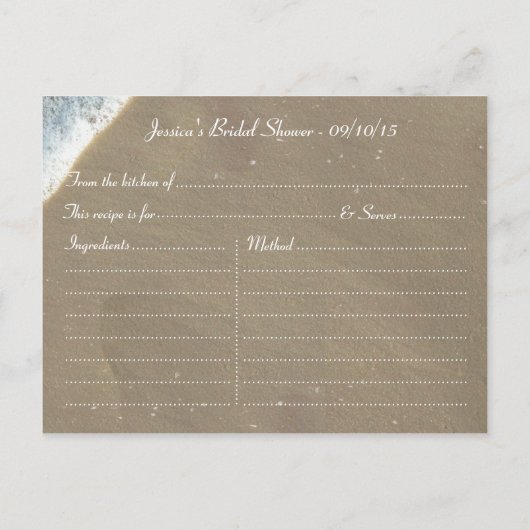 Jessica's Bridal Shower - 09/10/15
From the kitchen of
This recipe is for & Serves
Ingredients Method